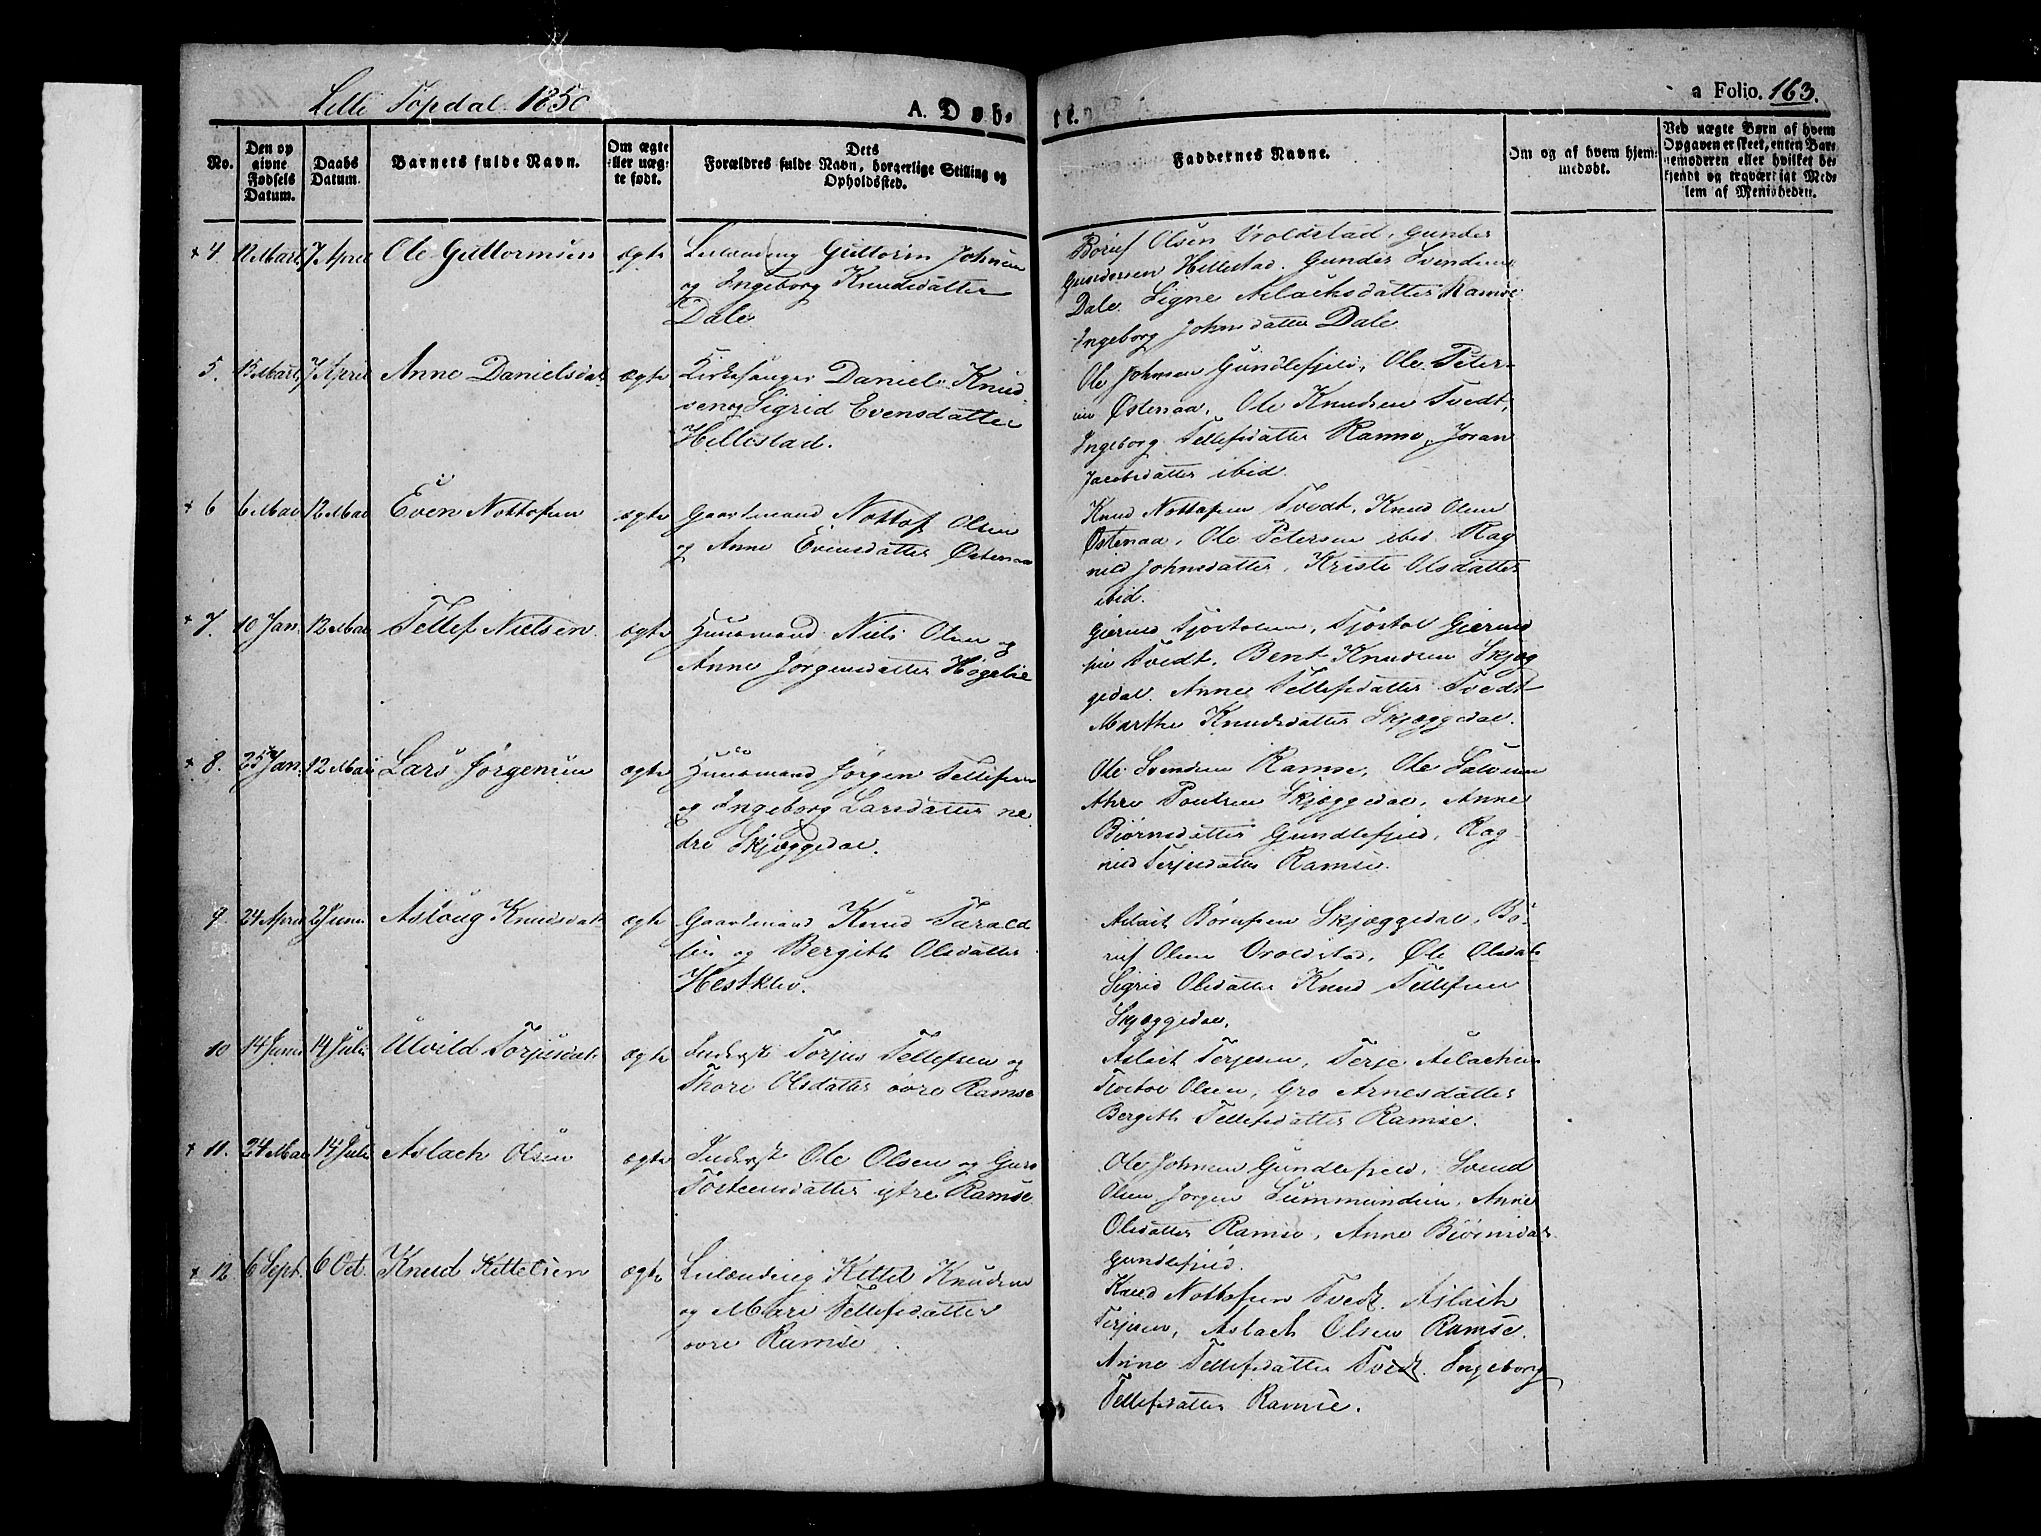 Lille Topdal 1850
A. Døb-
te.
a Folio. 163.
No.
Den op
givne
Fødsels
Datum.
Daabs
Datum.
Barnets fulde Navn.
Om ægte
eller uæg-
te født.
Dets
Forældres fulde Navn, borgerlige Stilling og
Opholdssted.
Faddernes Navne.
Om og af hvem hjem-
medøbt.
Ved uægte Børn af hvem
Opgaven er skeet, enten Bar-
nemoderen eller hvilket be-
kjendt og troværdigt Med-
lem af Menigheden.
+ 4 12 Marts 7 April Ole Guttormsen ægte Leilænding Guttorm Johnsen
og Ingeborg Knudsdatter
Dale
Børuf Olsen Vroldstad, Gunder
Gundersen Hillestad. Gunder Svendsen
Dale. Signe Aslachsdatter Ramse
Ingeborg Johnsdatter Dale
5. 15 Marts 7 April Anne Danielsdat. ægte Kirkesanger Daniel Knud-
sen og Sigrid Evensdatter
Hillestad.
Ole Johnsen Gundlefjeld, Ole Peter-
sen Østenaa, Ole Knudsen Tvedt,
Ingeborg Tellefsdatter Ramse, Joran
Jacobsdatter ibid.
+ 6 6 Mai 12 Mai Even Nottofsen ægte Gaardmand Nottof Olsen
og Anne Evensdatter Østenaa
Knud Nottofsen Tvedt, Knud Olsen
Østenaa, Ole Petersen ibid Rag
nild Johnsdatter, Kristi Olsdatter
ibid.
+ 7. 10 Jan. 12 Mai Tellef Nielsen ægte Huusmand Niels Olsen og
Anne Jørgensdatter Høgelie
Gjerund Tjøstolsen, Tjøstol Gjerund
sen Tvedt, Bent Knudsen Skjæg
gedal. Anne Tellefsdatter Tvedt
Marthe Knudsdatter Skjæggedal.
+ 8. 25 Jan. 12 Mai Lars Jørgensen ægte Huusmand Jørgen Tellefsen
og Ingeborg Larsdatter ne
dre Skjæggedal.
Ole Svendsen Ramse, Ole Salvesen
Skjæggedal, Anne
Bjørnsdatter Gundlefjeld, Rag-
nild Terjesdatter Ramse.
9. 24 April 2 Juni Aslaug Knudsdat. ægte Gaardmand Knud Tarald
sen og Bergith Olsdatter
Hestklev.
Aslach Børufsen Skjæggedal, Bø-
ruf Olsen Vroldstad, Øle Olsdat.
Sigrid Olsdatter Knud Tellefsen
Skjæggedal.
10 14 Juni 14 Juli Ulvild Torjusdat. ægte Inderst Torjus Tellefsen og
Thore Olsdatter øvre Ramse
Aslach Terjesen, Terje Aslachsen
Tjøstol Olsen, Gro Arnesdatter
Bergith Tellefsdatter Ramse.
+ 11. 24 Mai 14 Juli Aslach Olsen ægte Inderst Ole Olsen og Guro
Tosteensdatter ytre Ramse
Ole Johnsen Gundlefjeld, Svend
Olsen, Jørgen Summundsen, Anne
Olsdatter Ramse, Anne Bjørnsdat.
Gundlefjeld.
+ 12 6 Sept. 6 Oct. Knud Kittelsen ægte Leilænding Kittel Knudsen
og Mari Tellefsdatter
øvre Ramse.
Knud Nottofsen Tvedt. Aslach
Terjesen, Aslach Olsen Ramse.
Anne Tellefsdatter Tvedt. Ingeborg
Tellefsdatter Ramse.